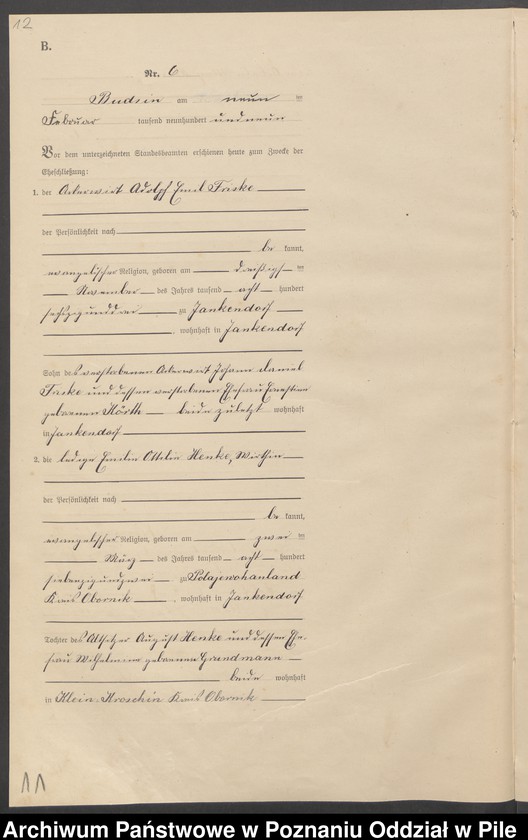 12
B.
Nr. 6
Budsin am neun ten
Februar tausend neunhundert und neun
Vor dem unterzeichneten Standesbeamten erschienen heute zum Zwecke der
Eheschließung:
1. der Ackerwirt Adolf Emil Friske
der Persönlichkeit nach
be kannt,
evangelischer Religion, geboren am dreißigs ten
November des Jahres tausend acht hundert
sechzig und drei zu Jankendorf
, wohnhaft in Jankendorf
Sohn des verstorbenen Ackerwirt Johann Daniel
Friske und dessen verstorbenen Ehefrau Ernestine
geborenen Körth beide zuletzt wohnhaft
in Jankendorf
2. die ledige Emilie Ottilie Henke, Wirthin
der Persönlichkeit nach
be kannt,
evangelischer Religion, geboren am zwei ten
März des Jahres tausend acht hundert
siebenzig und zwei zu Polajewohauland
Kreis Obornik , wohnhaft in Jankendorf
Tochter des Altsitzer August Henke und dessen Ehe-
frau Wilhelmine geborenen Grundmann
beide wohnhaft
in Klein-Kroschin Kreis Obornik
11
Archiwum Państwowe w Poznaniu Oddział w Pile